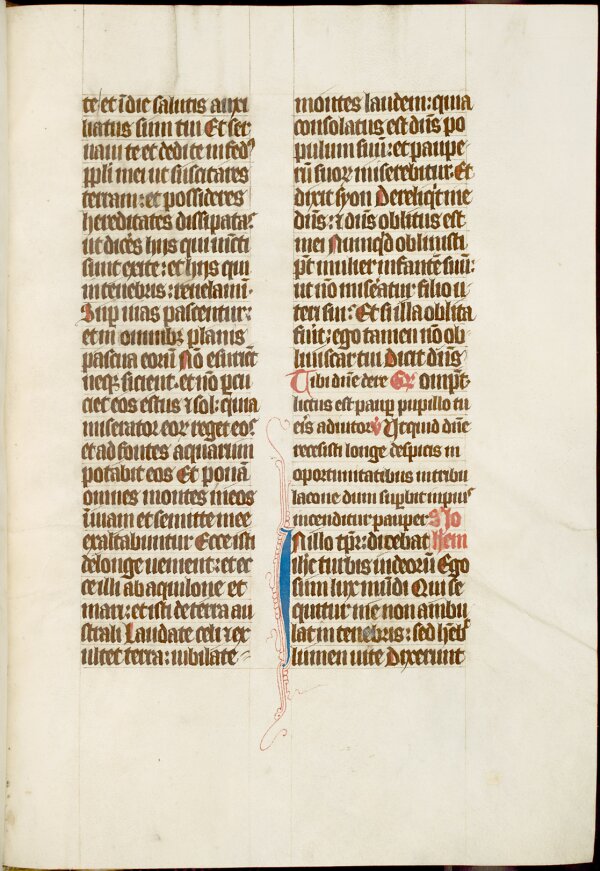 te et ī die salutis auxi
liatus sum tui Et ser
uaui te et dedi te in fedꝰ
ppl̄i mei ut suscitares
terram: et possideres
hereditates dissipatas
ut dicēs hijs qui uīcti
sunt exite: et hijs qui
in tenebris: reuelamī.
Sup uias pascentur:
et in omnibꝫ planis
pascua eorū Nō esuriēt
neqꝫ sicient. et nō pcu
ciet eos estus ⁊ sol: quia
miserator eoꝝ reget eos
et ad fontes aquarum
potabit eos Et ponā
omnes montes meos
ī uiam et semitte mee
exaltabuntur Ecce isti
de longe uenient: et ec
ce illi ab aquilone et
mari: et isti de terra au
strali Laudate celi ⁊ ex
ultet terra: iubilate
montes laudem: quia
consolatus est dn̄s po
pulum suū: et paupe
rū suoꝝ miserebitur Et
dixit syon Dereliqͥt me
dn̄s: ⁊ dn̄s oblitus est
mei Numqͥd obliuisci
pt̄ mulier infantē suū:
ut nō mis̄eatur filio u
teri sui: Et si illa oblita
fūit: ego tamen nō ob
liuiscar tui Dicit dn̄s
Tibi dn̄e dere Gr̄ omp̄t.
lictus est paup pupillo tu
eris adiutor ℣ Ut quid dn̄e
recessisti longe despicis in
oportunitatibus in tribu
lacione dum supbit impius
incenditur pauper Scd̄m Io
In illo tp̄r: dicebat hannem
ihc̄ turbis iudeorū Ego
sum lux mūdi Qui se
quitur me non ambu
lat in tenebris: sed hēbꝫ
lumen uite Dixerunt